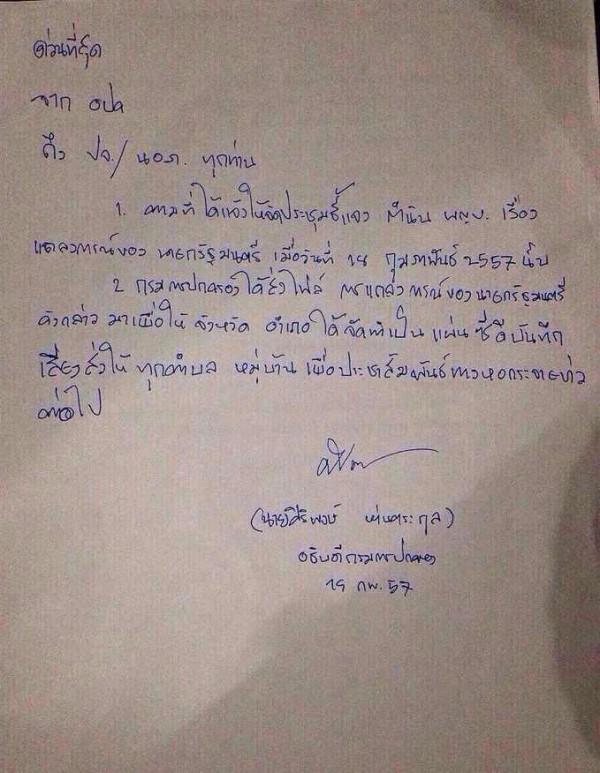 ด่วนที่สุด
จาก อปค
ถึง ปจ./นอภ. ทุกท่าน
1. ตามที่ได้แจ้งให้จัดประชุมชี้แจง กำนัน ผญบ. เรื่อง
แถลงการณ์ของ นายกรัฐมนตรี เมื่อวันที่ 18 กุมภาพันธ์ 2557 นั้น
2 กรมการปกครองได้ส่งไฟล์ การแถลงการณ์ของนายกรัฐมนตรี
ดังกล่าว มาเพื่อให้ จังหวัด อำเภอ ได้จัดทำเป็น แผ่นซีดีบันทึก
เสียงส่งให้ ทุกตำบล หมู่บ้าน เพื่อประชาสัมพันธ์ทางหอกระจายข่าว
ต่อไป
(นายศิริพงษ์ ห่านตระกูล)
อธิบดีกรมการปกครอง
19 กพ. 57